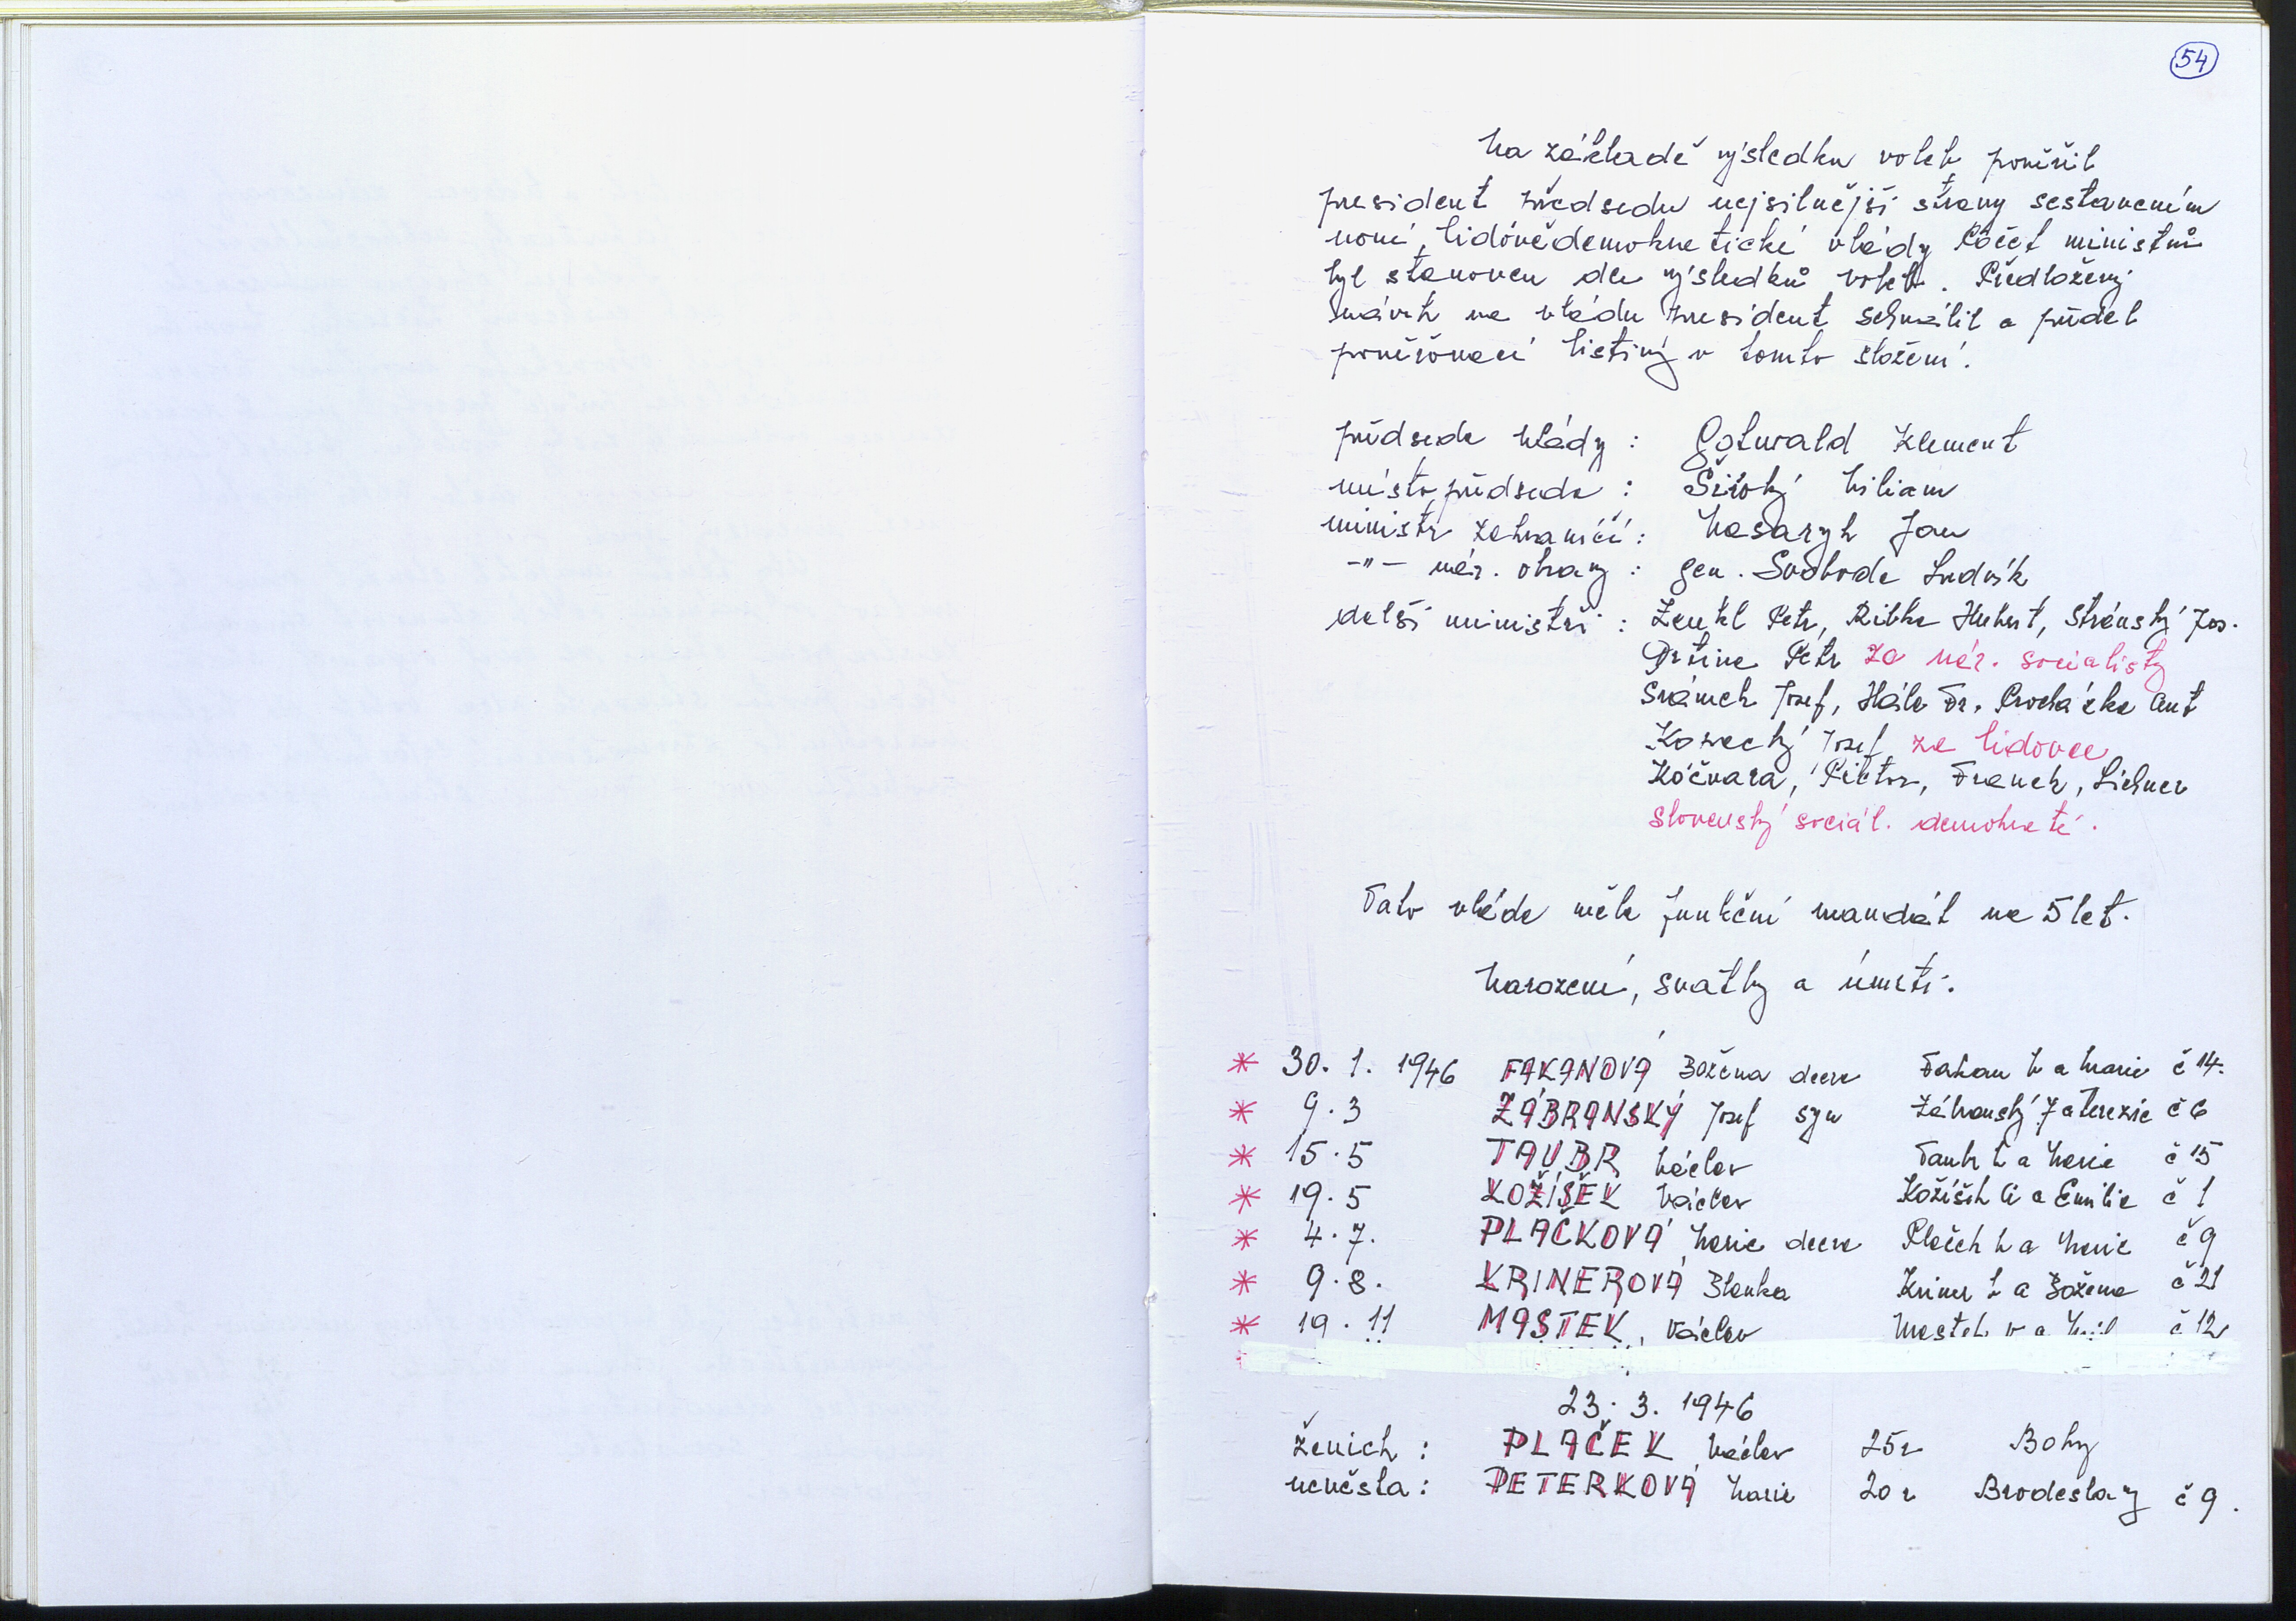 54
Na základě výsledku voleb pověřil
president předsedu nejsilnější strany sestavením
nové, lidovědemokratické vlády Počet ministrů
byl stanoven dle výsledků voleb. Předložený
návrh na vládu president schválil a předal
pověřovací listiny v tomto složení.
předseda vlády : Gotwald Klement
místopředseda : Široký Viliam
ministr zahraničí : Masaryk Jan
-"- nár. obrany : gen. Svoboda Ludvík
další ministři : Zenkl Petr, Ribka Hubert, Stránský Jos.
Drtina Petr za nár. socialisty
Srámek Josef, Hála Fr. Procházka Ant
Kosecký Josef za lidovce
Kočvara, Pietor, Franek, Lichner
slovenský sociál. demokraté.
Tato vláda měla funkční mandát na 5 let.
Narození, svatby a úmrtí.
* 30. 1. 1946 FAKANOVÁ Božena dcera Fakan V a Marie č 14.
* 9. 3 ZÁBRANSKÝ Josef syn Zábranský J a Terezie č 6
* 15. 5 TAUBR Václav Taubr V a Marie č 15
* 19. 5 KOŽÍŠEK Václav Kožíšek A a Emilie č 1
* 4. 7. PLAČKOVÁ Marie dcera Plaček V a Marie č 9
* 9. 8. KRINEROVÁ Blanka Kriner V a Božena č 21
* 19. 11 MASTEK, Václav Mastek V a č 12
23. 3. 1946
ženich : PLAČEK Václav 25r Bohy
nevěsta : PETERKOVÁ Marie 20 r Brodeslavy č 9.